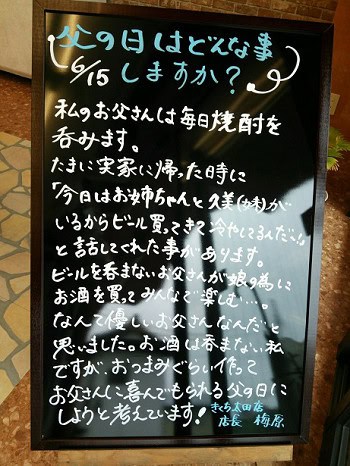 父の日はどんな事
6/15 しますか?
私のお父さんは毎日焼酎を
呑みます。
たまに実家に帰った時に
「今日はお姉ちゃんと久美(妹)が
いるからビール買ってきて冷やしてるんだ〜」
と話してくれた事があります。
ビールを呑まないお父さんが娘の為に
お酒を買ってみんなで楽しむ…。
なんて優しいお父さんなんだと
思いました。お酒は呑まない私
ですが、おつまみぐらい作って
お父さんに喜んでもられる父の日に
しようと考えています!
きくち太田店
店長 梅原